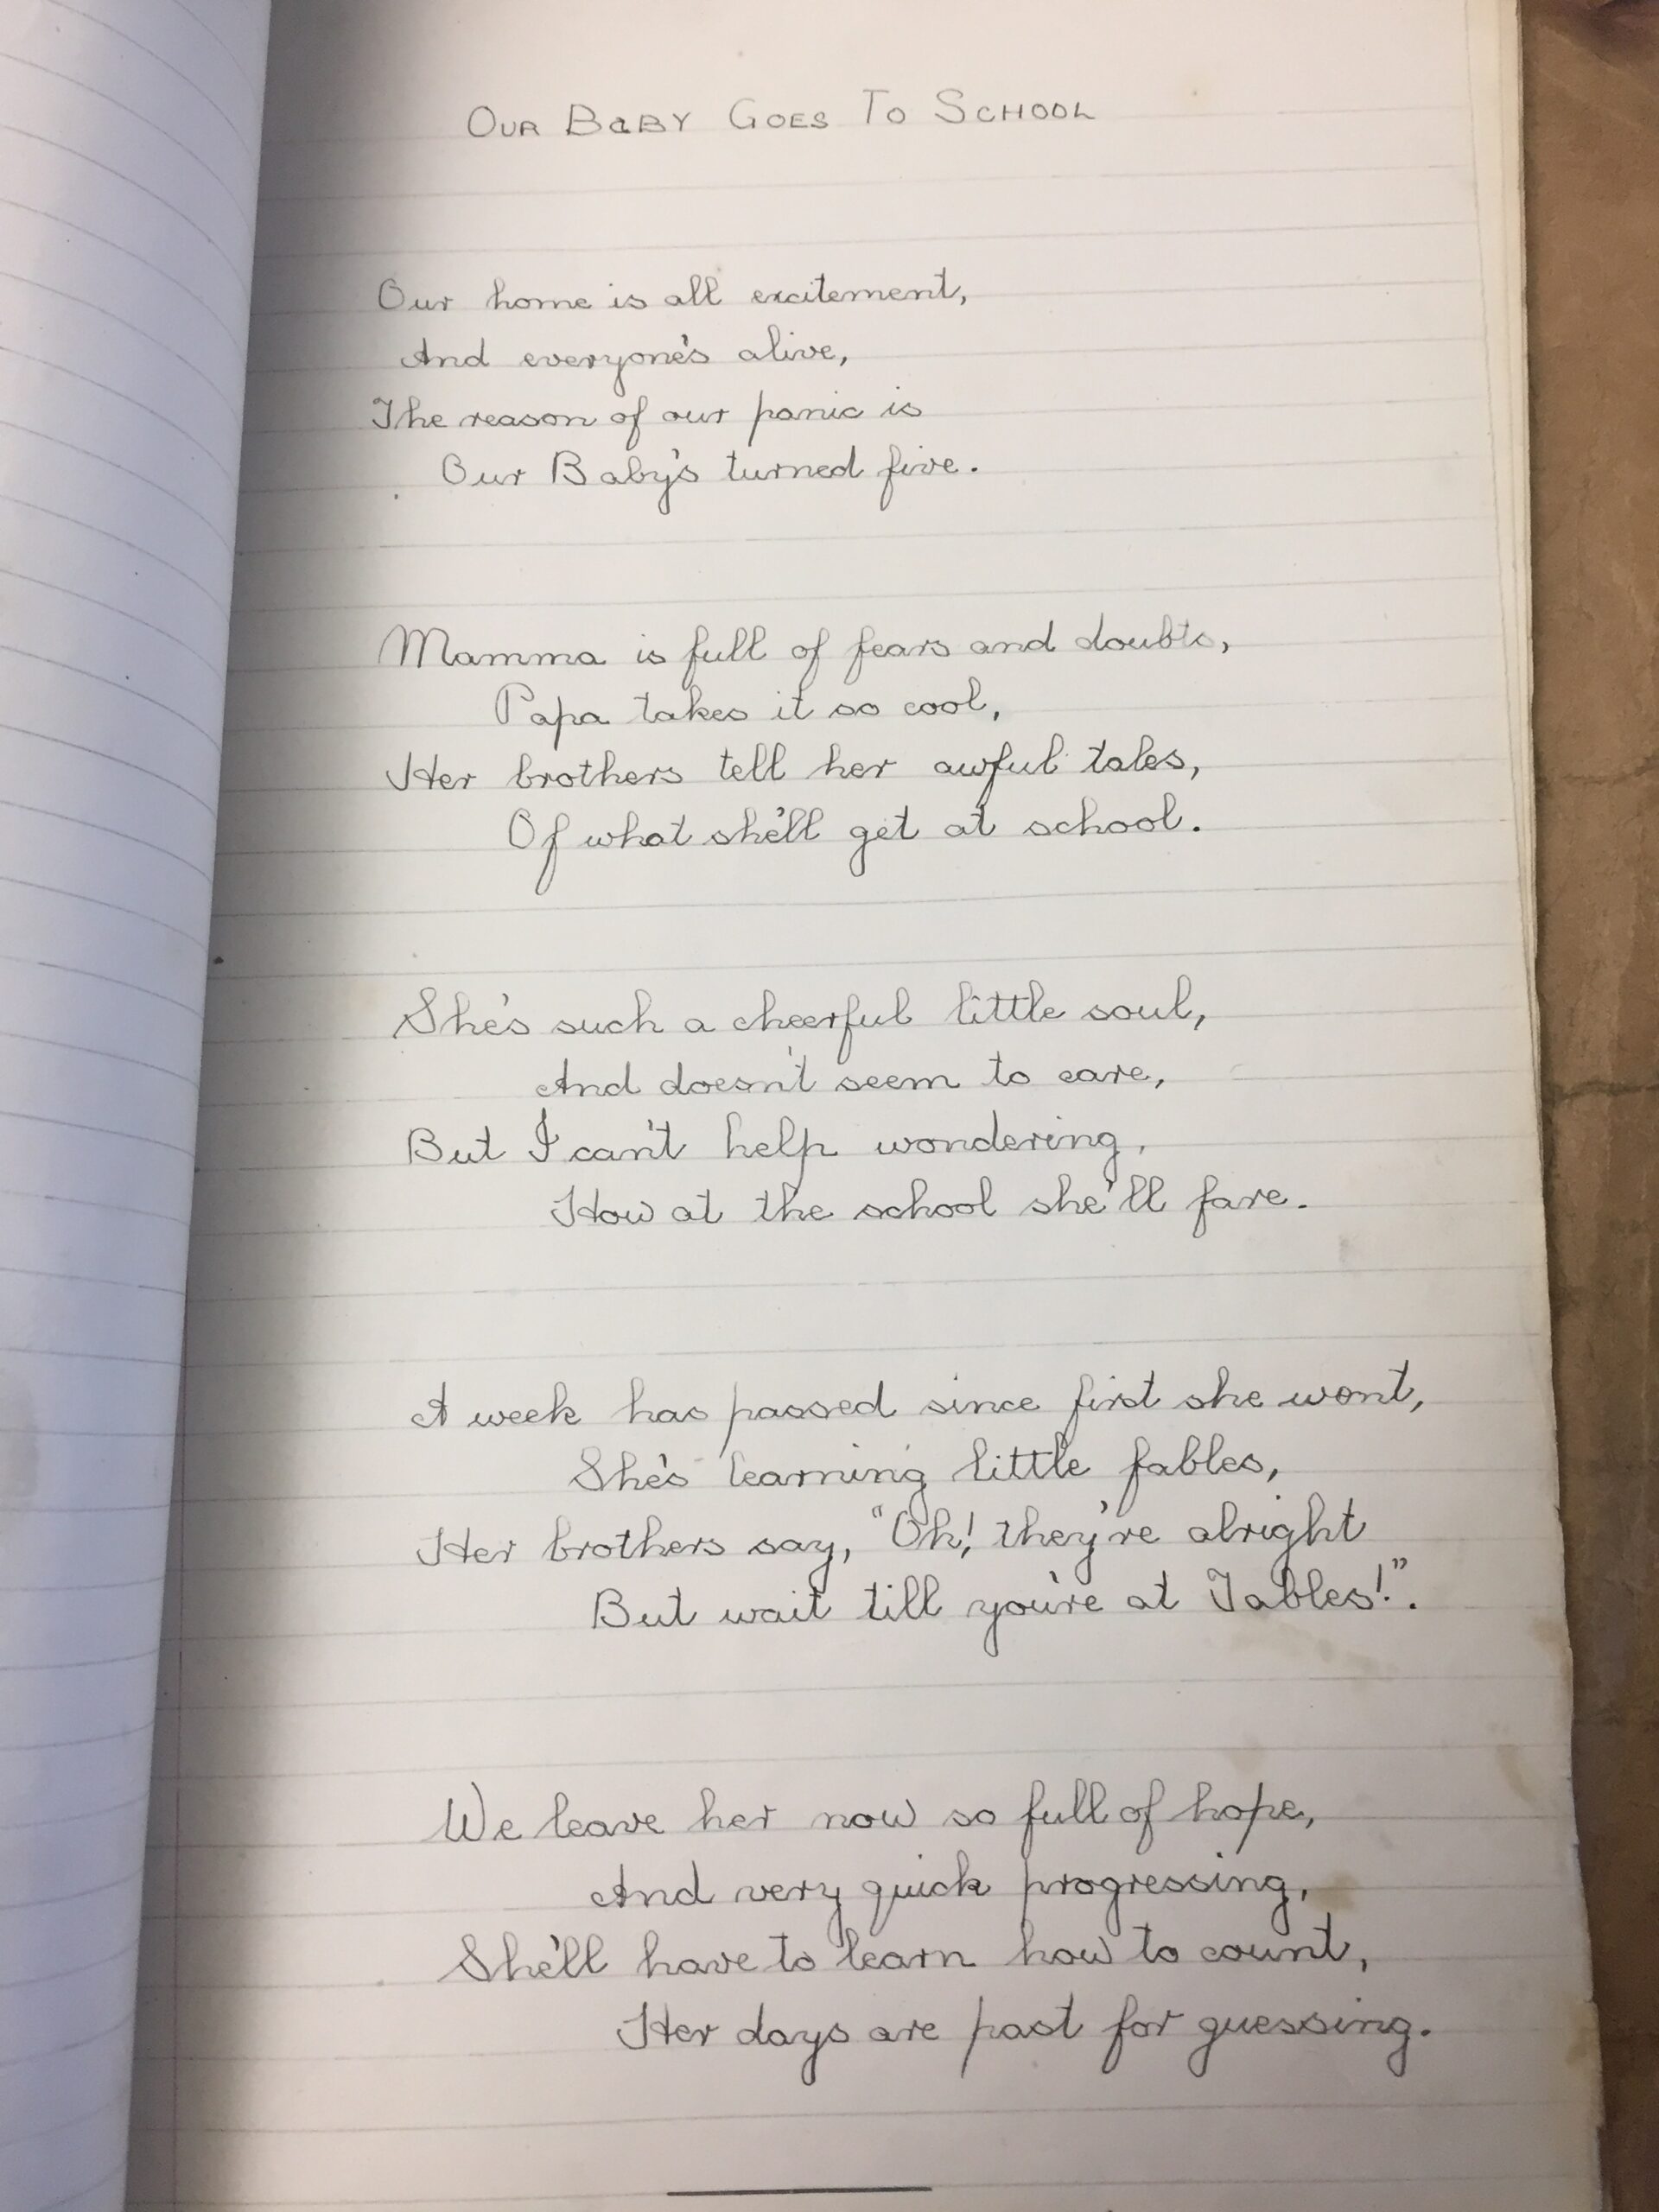 OUR BABY GOES TO SCHOOL
Our home is all excitement,
And everyone's alive,
The reason of our panic is
Our Baby's turned five.
Mamma is full of fears and doubts,
Papa takes it so cool,
Her brothers tell her awful tales,
Of what she'll get at school.
She's such a cheerful little soul,
And doesn't seem to care,
But I can't help wondering,
How at the school she'll fare.
A week has passed since first she went,
She's learning little fables,
Her brothers say, "Oh! they're alright
But wait till you're at Tables!".
We leave her now so full of hope,
And very quick progressing,
She'll have to learn how to count,
Her days are past for guessing.